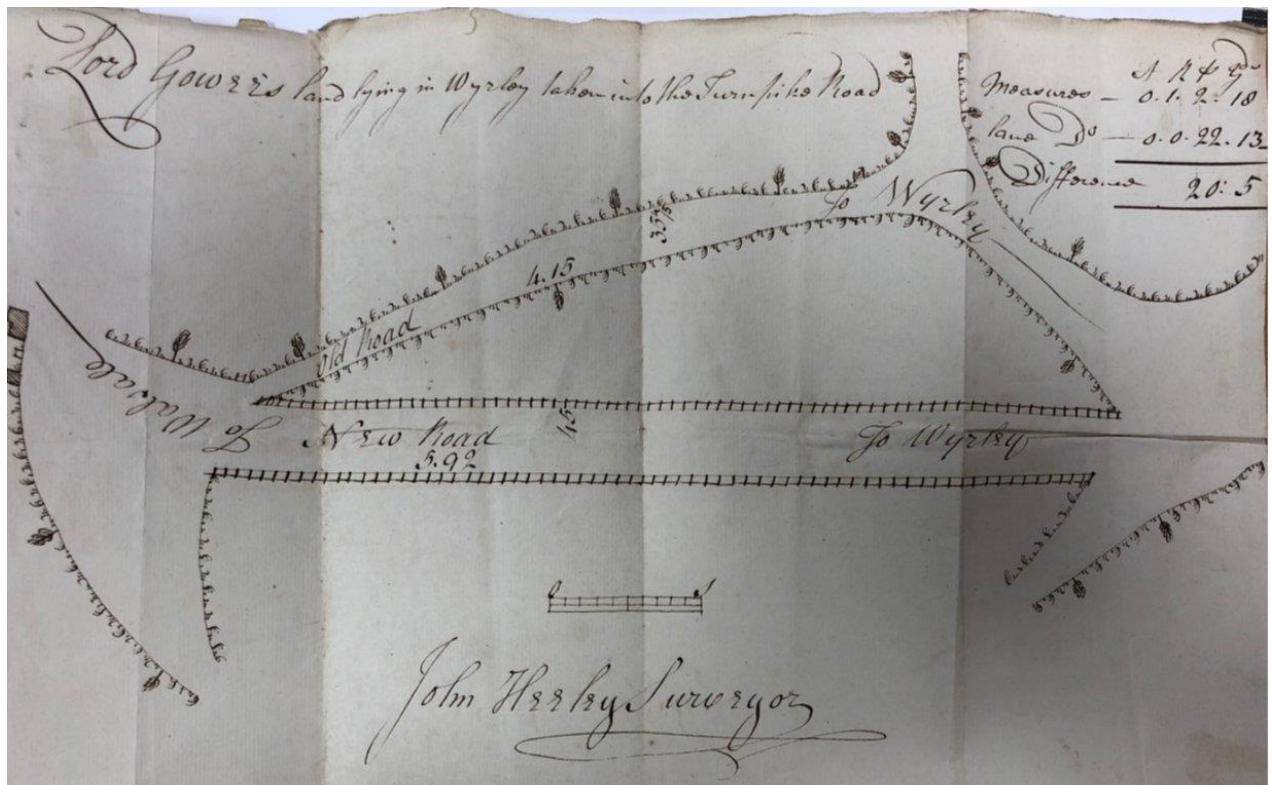 Lord Gowers land lying in Wyrley taken into the Turnpike Road
A R P Yds
Measures — 0. 1. 2. 18
lane Do — 0. 0. 22. 13
Difference 20: 5
To Wyrley
4.15
Old Road
To Walsale
45
New Road
To Wyrley
5.92
0 1
John Heeley Surveyor